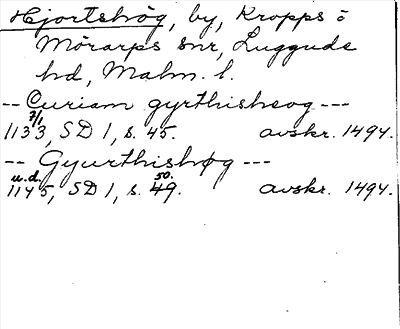 Hjortshög, by, Kropps o
Mörarps snr, Luggude
hd, Malm. l.
-- Curiam gyrthisheog ---
7/1
1133, SD 1, s. 45. avskr. 1494.
-- Gyurthishøg ---
u.d. 50.
1145, SD 1, s. 49. avskr. 1494.